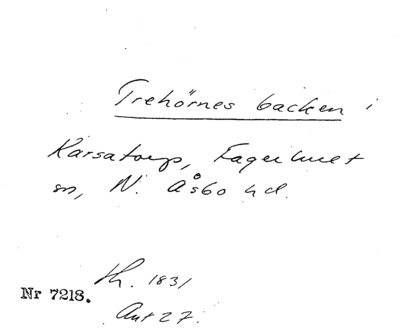 Trehörnes backen i
Karsatorp, Fagerhult
sn, N. Åsbo hd.
th. 1831
Nr 7218.
Ant 27.